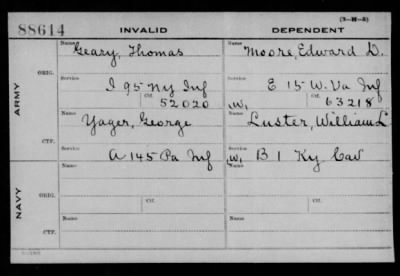 (3-H-5)
88614 INVALID DEPENDENT
Name Geary, Thomas Name Moore, Edward D.
ARMY
ORIG.
Service I 95 NY Inf Service E 15 W. Va Inf
Ctf. 52020 (W) Ctf. 63218
Name Yager, George Name Luster, William L
CTF.
Service A 145 Pa Inf Service (W) B 1 Ky Cav
NAVY
Name Name
ORIG.
Service Ctf. Service Ctf.
Name Name
CTF.
Service Service